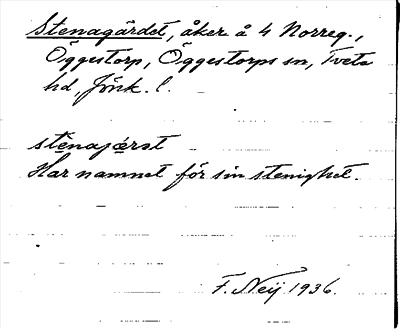 Stenagärdet, åker å 4 Norreg.,
Öggestorp, Öggestorps sn, Tveta
hd, Jönk. l.
stenajærət
Har namnet för sin stenighet.
F. Neij 1936.